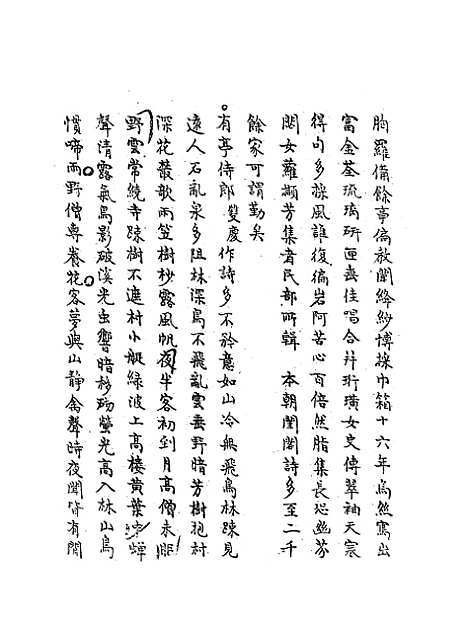 胸羅備餘事偏敎闡絳紗博採巾箱十六年烏絲寫出
富金荃琉璃研匣唾佳唱合幷珩璜女史傳翠袖天寒
得句多採風誰復徧岩阿苦心百倍然脂集長恐幽芬
閟女蘿擷芳集耆民部所輯 本朝閨閣詩多至二千
餘家可謂勤矣
有亭侍郎雙慶作詩多不矜意如山冷無飛鳥林疎見
遠人石亂泉多阻林深鳥不飛亂雲垂野暗芳樹抱村
深花叢歌雨笠樹杪露風帆夜半客初到月高僧未眠
野雲常繞寺疎樹不遮村小艇綠波上高樓黃葉中蟬
聲清露氣鳥影破溪光虫響暗移砌螢光高入林山鳥
慣啼雨野僧專養花客夢與山靜禽聲時夜聞皆有閒